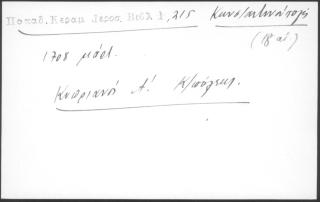 Παπαδ. Κεραμ Ιεροσ. Βιβλ 1, 215 Κωνσταντινούπολις
(18 αἰ.)
1708 μάρτ.
Κυπριανός Α! Κ/πόλεως